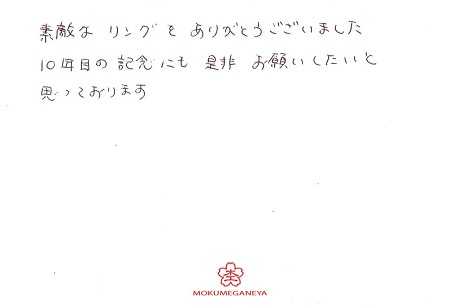 素敵な リングを ありがとうございました
10年目の 記念にも 是非 お願いしたいと
思っております
MOKUMEGANEYA